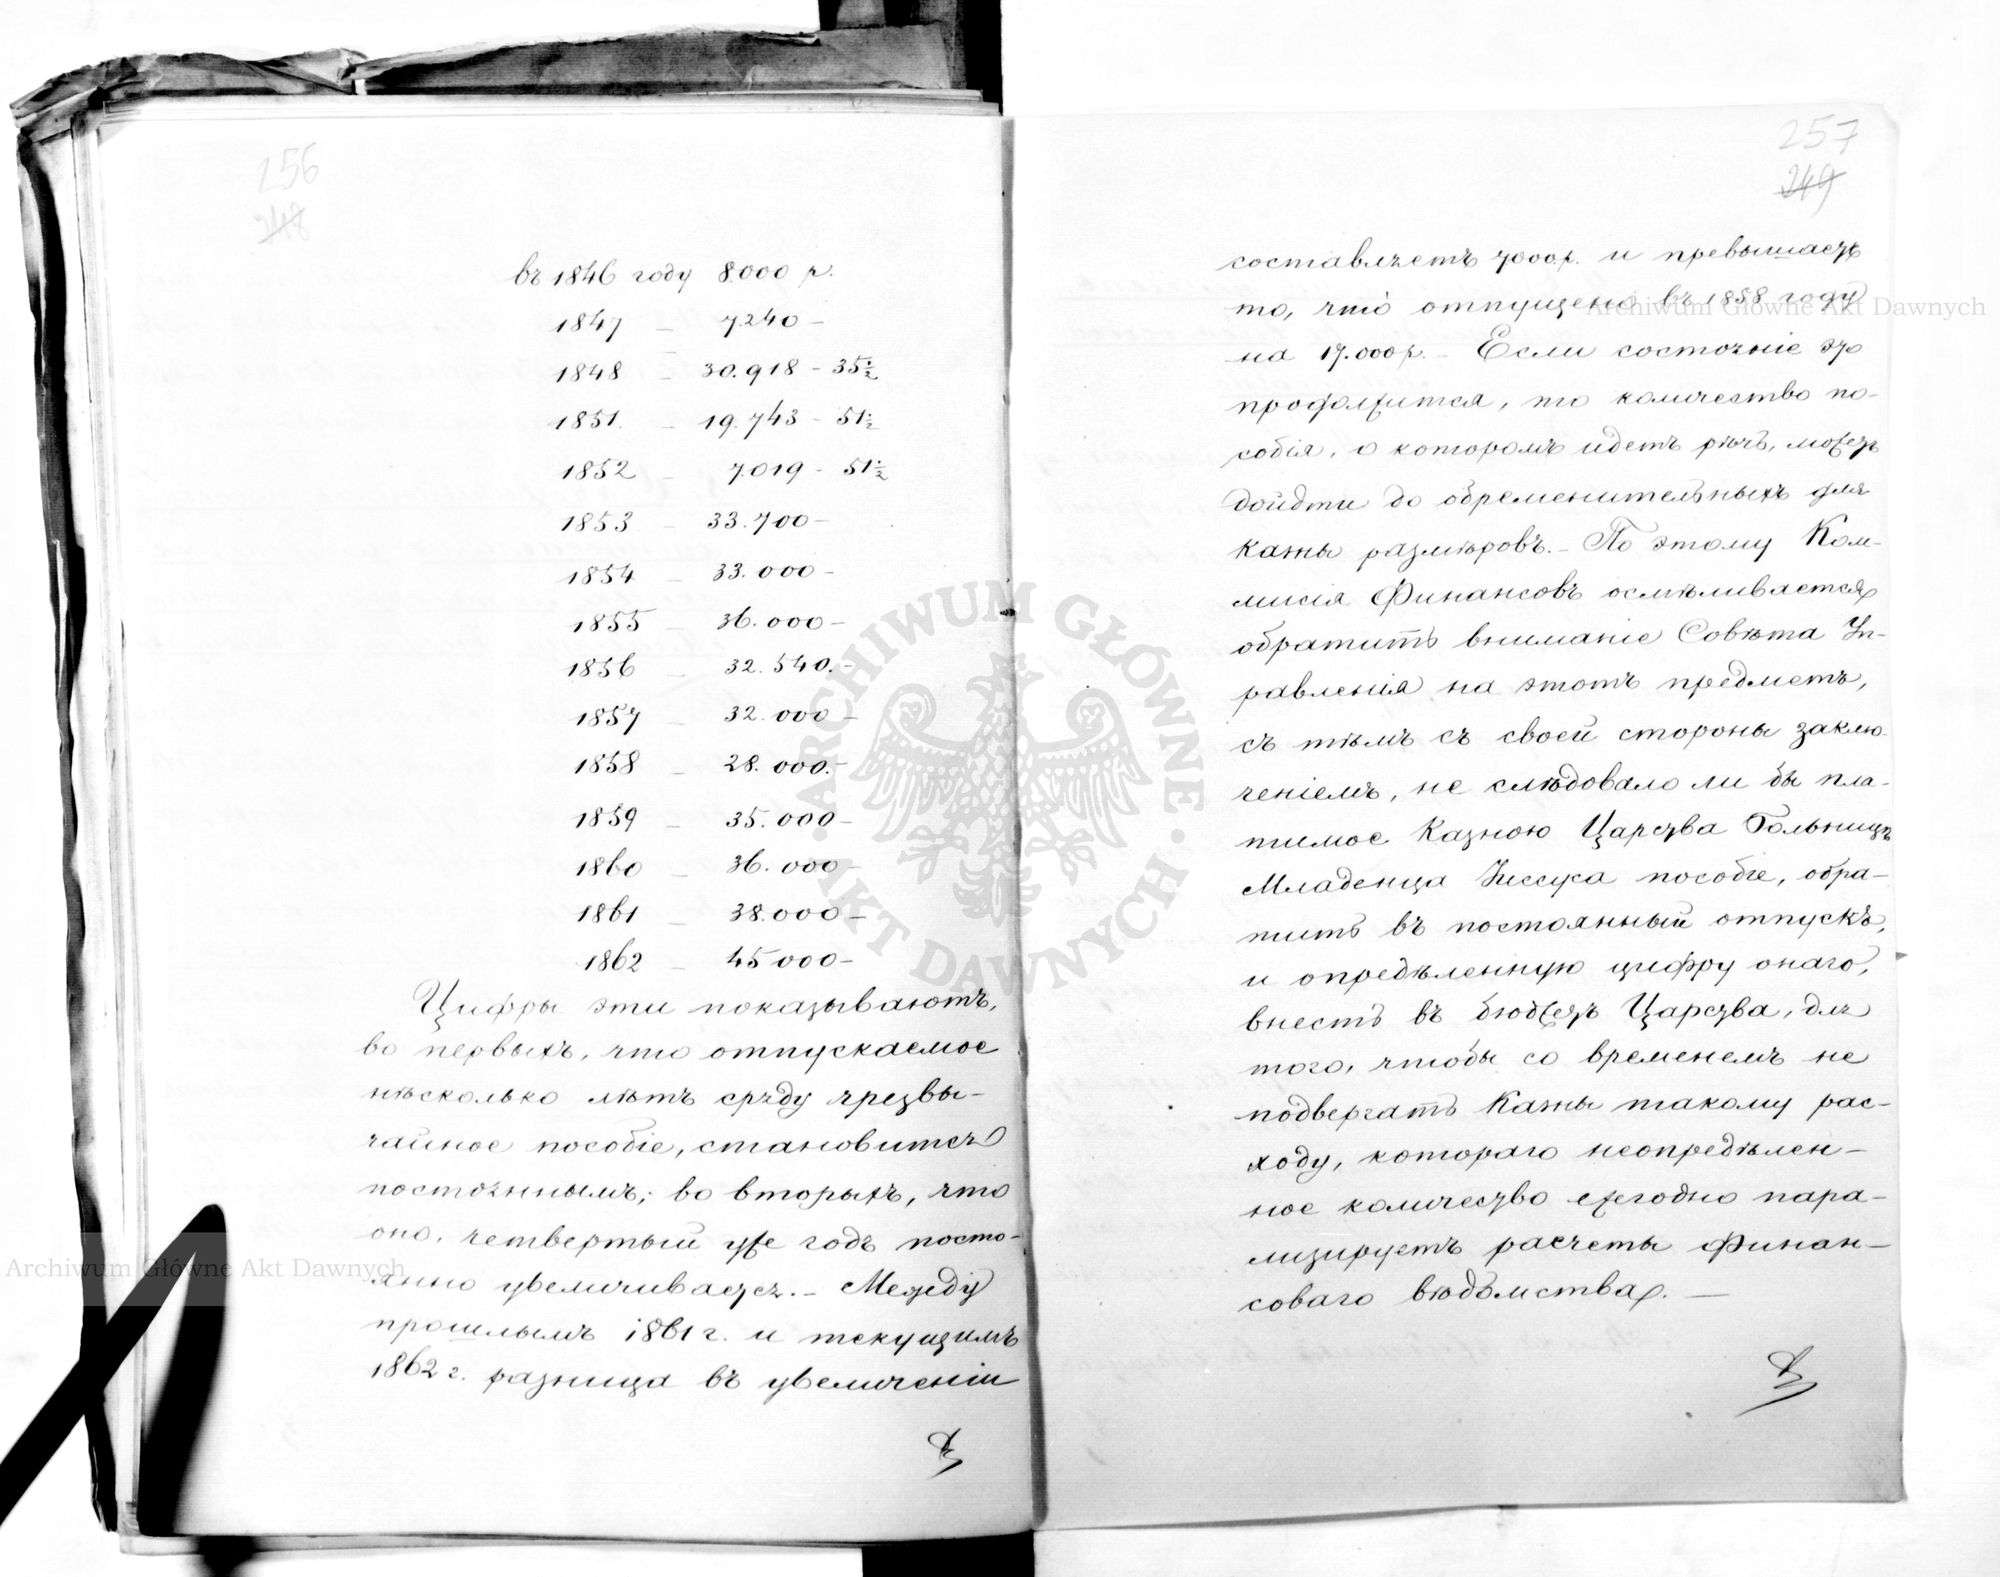 256
248
въ 1846 году 8.000 р.
1847 — 7.240 —
1848 — 30.918 - 35½
1851. — 19.743 - 51½
1852 — 7.019 - 51½
1853 — 33.700 —
1854 — 33.000 —
1855 — 36.000 —
1856 — 32.540. —
1857 — 32.000 —
1858 — 28.000. —
1859 — 35.000 —
1860 — 36.000 —
1861 — 38.000 —
1862 — 45000 —
Цифры эти показываютъ,
во первыхъ, что отпускаемое
нѣсколько лѣтъ сряду чрезвы-
чайное пособіе, становится
постояннымъ; во вторыхъ, что
оно, четвертый уже годъ посто-
янно увеличивается. — Между
прошлымъ 1861 г. и текущимъ
1862 г. разница въ увеличеніи
257
249
составляетъ 7000 р. и превышаетъ
то, что отпущено въ 1858 году
на 17.000 р. — Если состояніе это
продолжится, то количество по-
собія, о которомъ идетъ рѣчь, можетъ
дойдти до обременительныхъ для
Казны размѣровъ. — По этому Ком-
мисія Финансовъ осмѣливается
обратить вниманіе Совѣта Уп-
равленія на этотъ предметъ,
съ тѣмъ съ своей стороны заклю-
ченіемъ, не слѣдовало ли бы пла-
тимое Казною Царства Больницѣ
Младенца Іисуса пособіе, обра-
тить въ постоянный отпускъ,
и опредѣленную цифру онаго,
внесть въ бюджетъ Царства, для
того, чтобы со временемъ не
подвергать Казны такому рас-
ходу, котораго неопредѣлен-
ное количество ежегодно пара-
лизируетъ расчеты Финан-
соваго вѣдомства. —
Archiwum Główne Akt Dawnych
Archiwum Główne Akt Dawnych
ARCHIWUM GŁÓWNE · AKT DAWNYCH ·